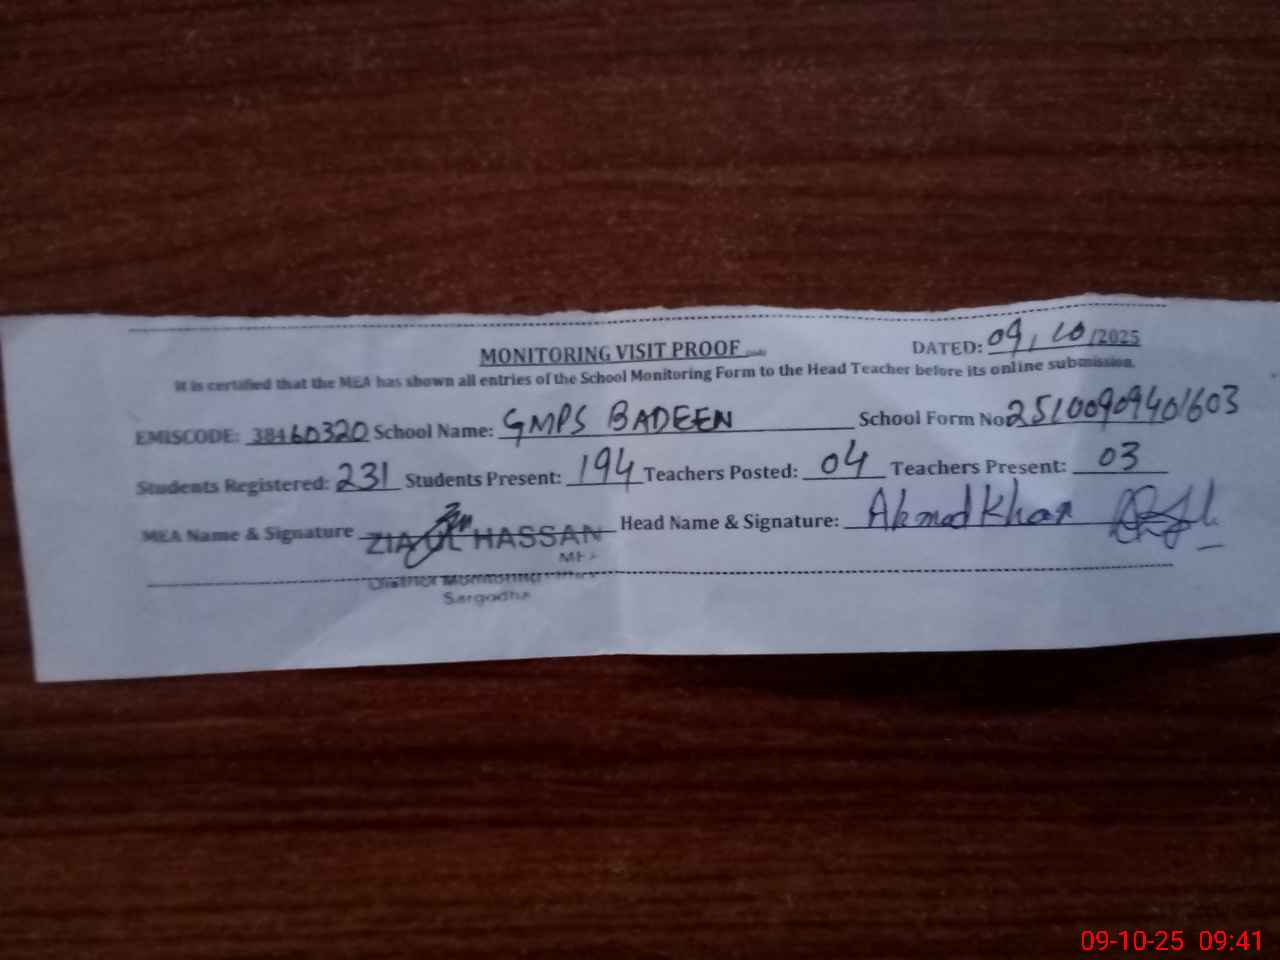 MONITORING VISIT PROOF
DATED: 09/10/2025
It is certified that the MEA has shown all entries of the School Monitoring Form to the Head Teacher before its online submission.
EMISCODE: 38460320 School Name: GMPS BADEEN School Form No 25100909401603
Students Registered: 231 Students Present: 194 Teachers Posted: 04 Teachers Present: 03
MEA Name & Signature ZIA UL HASSAN Head Name & Signature: Ahmad Khan
MEA
District Monitoring Office
Sargodha
09-10-25 09:41